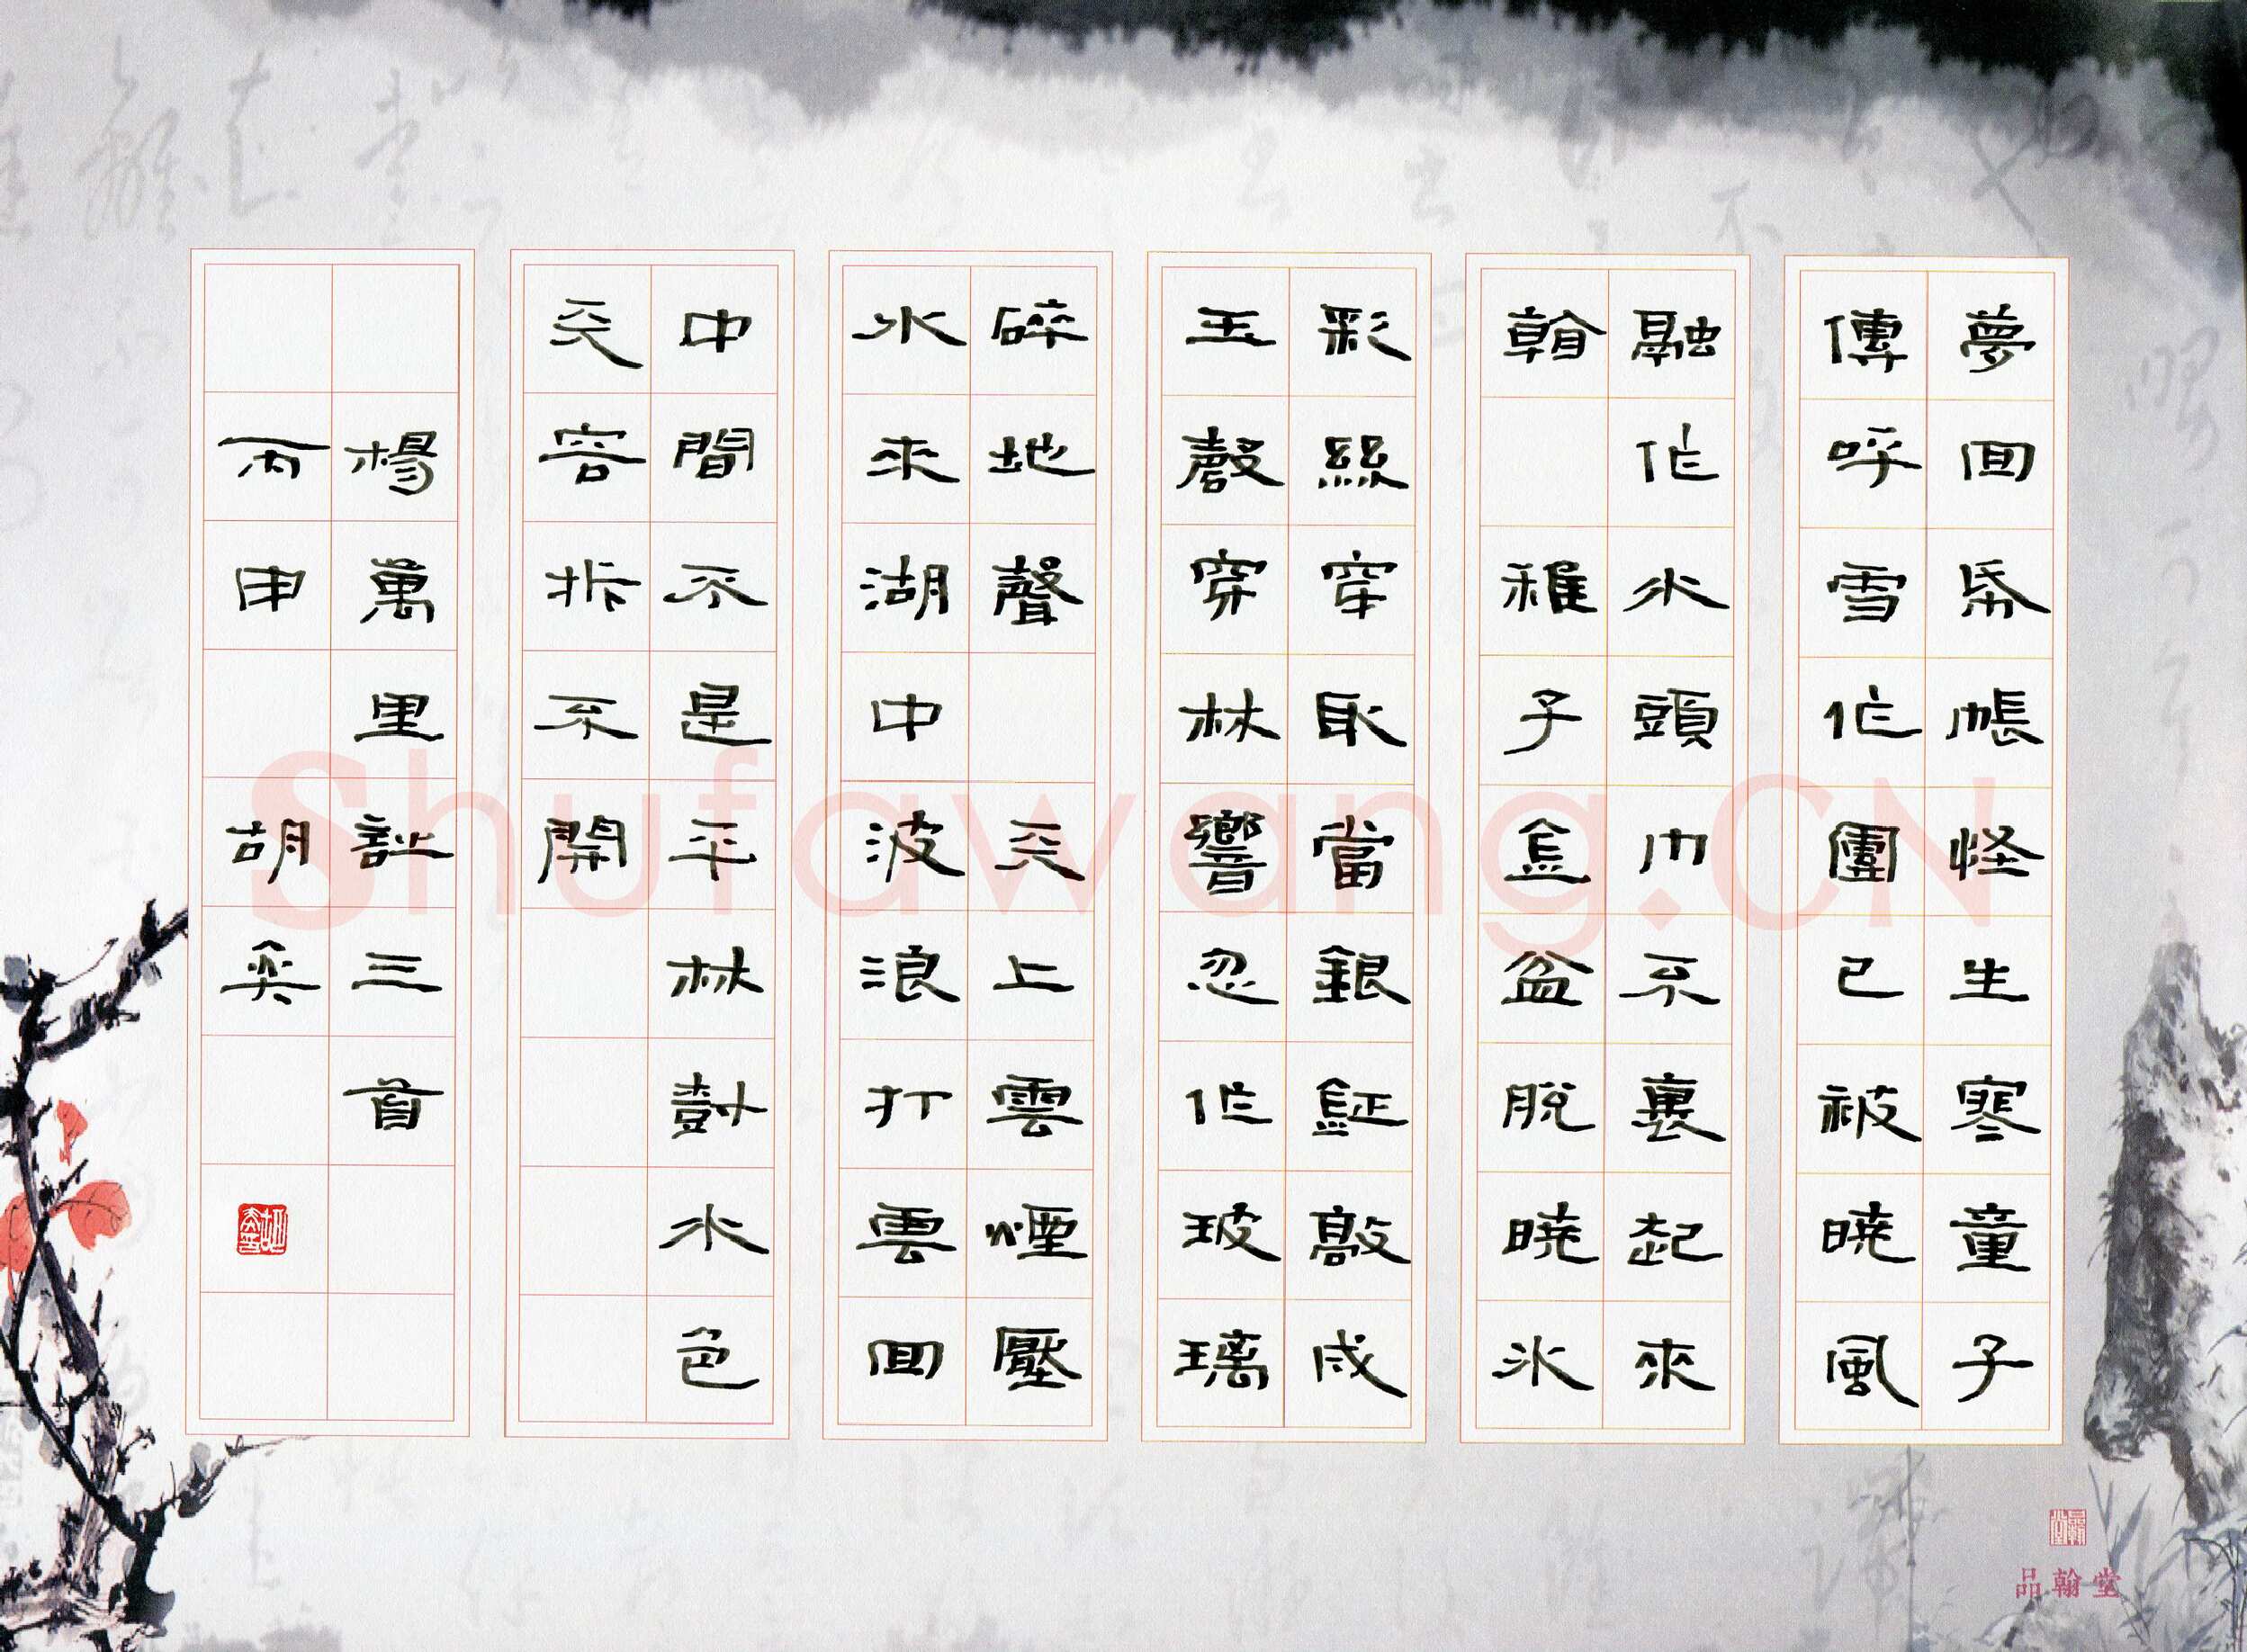 夢回帋帳怪生寒童子
傳呼雪作團已被曉風
融作水頭巾不裏起來
看 稚子金盆脫曉冰
彩絲穿取當銀鉦敲成
玉磬穿林響忽作玻璃
碎地聲 天上雲煙壓
水來湖中波浪打雲回
中間不是平林樹水色
天容拆不開
楊萬里詩三首
丙申 胡奕
Shufawang.CN
品翰堂